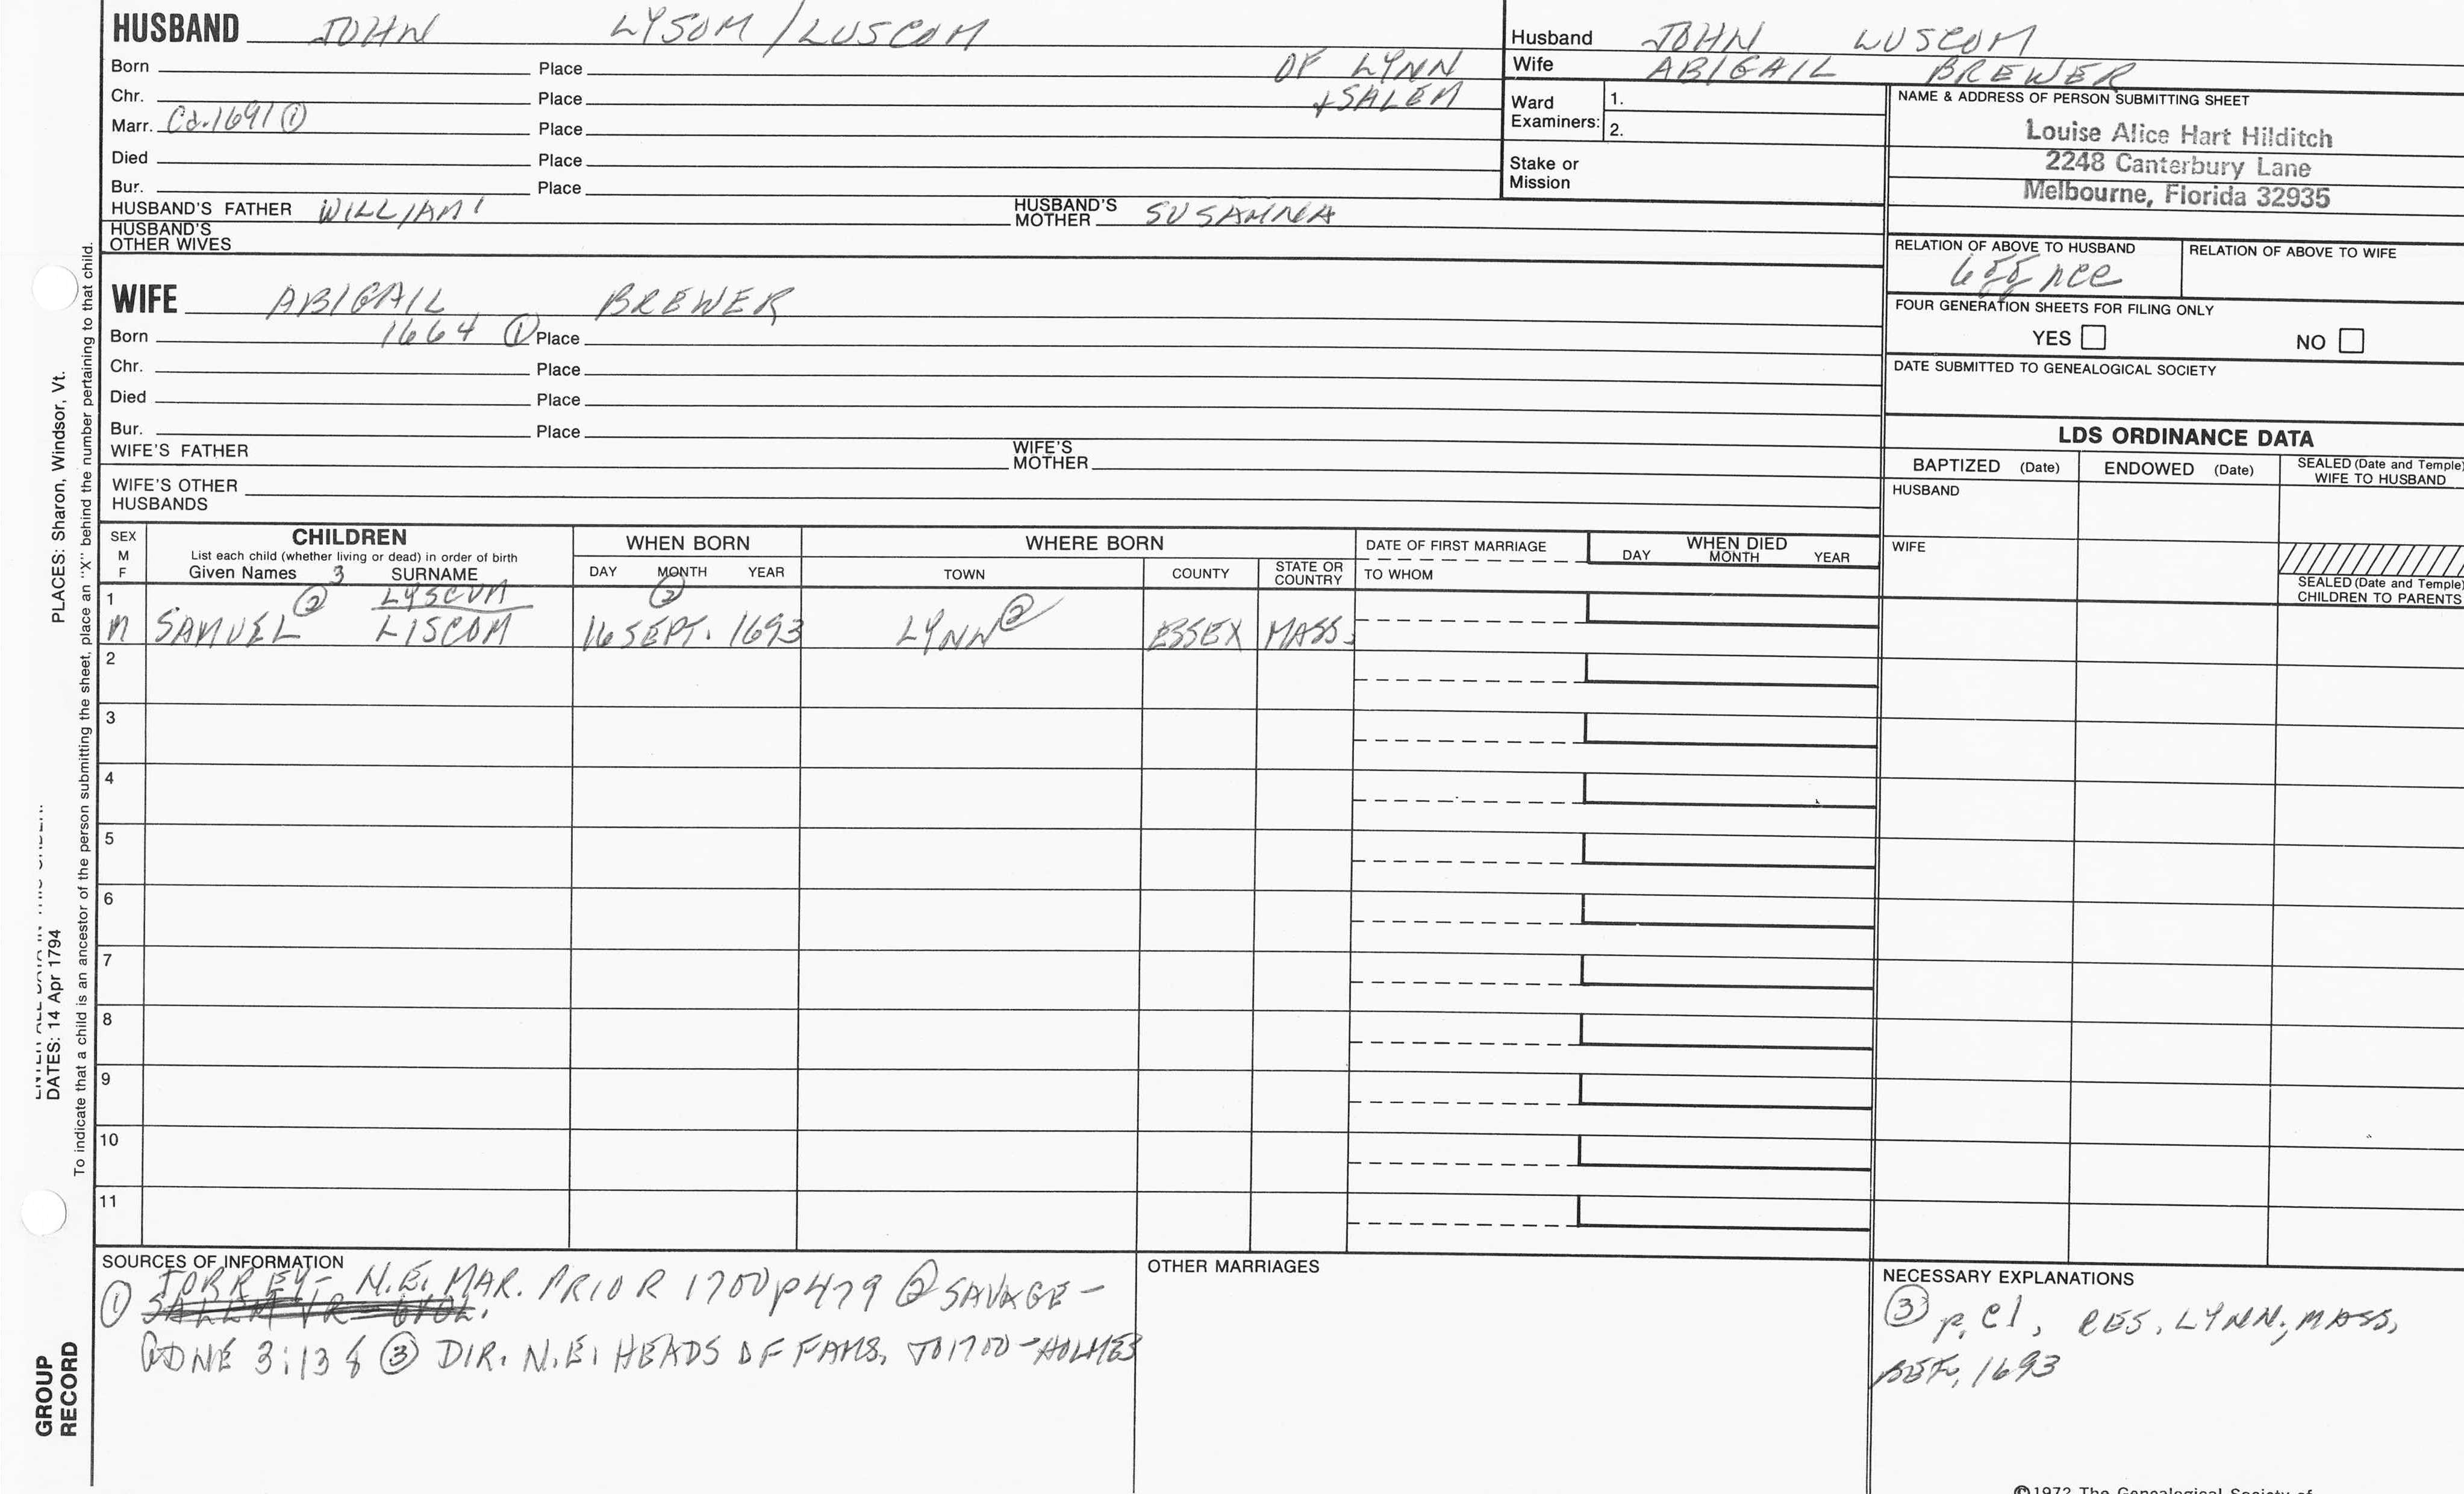 HUSBAND JOHN LYSOM / LUSCOM
Born Place OF LYNN
Chr. Place + SALEM
Marr. Ca. 1691 ① Place
Died Place
Bur. Place
HUSBAND'S FATHER WILLIAM¹ HUSBAND'S MOTHER SUSANNA
HUSBAND'S OTHER WIVES
WIFE ABIGAIL BREWER
Born 1664 ① Place
Chr. Place
Died Place
Bur. Place
WIFE'S FATHER WIFE'S MOTHER
WIFE'S OTHER HUSBANDS
Husband JOHN LUSCOM
Wife ABIGAIL BREWER
Ward Examiners: 1.
2.
Stake or Mission
NAME & ADDRESS OF PERSON SUBMITTING SHEET
Louise Alice Hart Hilditch
2248 Canterbury Lane
Melbourne, Florida 32935
RELATION OF ABOVE TO HUSBAND RELATION OF ABOVE TO WIFE
FOUR GENERATION SHEETS FOR FILING ONLY
YES NO
DATE SUBMITTED TO GENEALOGICAL SOCIETY
LDS ORDINANCE DATA
BAPTIZED (Date) ENDOWED (Date) SEALED (Date and Temple) WIFE TO HUSBAND
HUSBAND
WIFE
SEALED (Date and Temple)
CHILDREN TO PARENTS
SEX M F
CHILDREN
List each child (whether living or dead) in order of birth
Given Names 3 SURNAME
WHEN BORN
DAY MONTH YEAR
WHERE BORN
TOWN COUNTY STATE OR COUNTRY
DATE OF FIRST MARRIAGE
TO WHOM
WHEN DIED
DAY MONTH YEAR
1 ② LYSCUM ②
M SAMUEL LISCOM 16 SEPT. 1693 LYNN ② ESSEX MASS.
2
3
4
5
6
7
8
9
10
11
SOURCES OF INFORMATION
① TORREY- N.E. MAR. PRIOR 1700 p479 ② SAVAGE-
GDNE 3:138 ③ DIR. N.E. HEADS OF FAMS. TO 1700 - HOLMES
OTHER MARRIAGES
NECESSARY EXPLANATIONS
③ RES. LYNN, MASS,
BEF. 1693
PLACES: Sharon, Windsor, Vt.
DATES: 14 Apr 1794
To indicate that a child is an ancestor of the person submitting the sheet, place an "X" behind the number pertaining to that child.
GROUP
RECORD
©1972 The Genealogical Society of